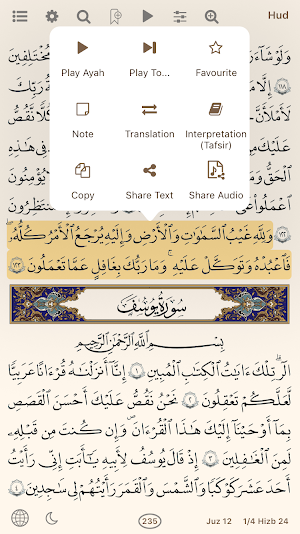 Hud
وَلَوْ شَآءَ مُخْتَلِفِينَ
Play Ayah Play To... Favourite
إِلَّا رَبِّكَ
لَأَمْلَأَنَّ وَكُلًّا نَّقُصُّ
Note Translation Interpretation (Tafsir)
عَلَيْكَ فِى هَٰذِهِ
ٱلْحَقُّ يُؤْمِنُونَ
Copy Share Text Share Audio
ٱعْمَلُوا۟ مُنتَظِرُونَ
وَلِلَّهِ غَيْبُ ٱلسَّمَٰوَٰتِ وَٱلْأَرْضِ وَإِلَيْهِ يُرْجَعُ ٱلْأَمْرُ كُلُّهُۥ
فَٱعْبُدْهُ وَتَوَكَّلْ عَلَيْهِ ۚ وَمَا رَبُّكَ بِغَٰفِلٍ عَمَّا تَعْمَلُونَ ١٢٣
سُورَةُ يُوسُفَ
بِسْمِ ٱللَّهِ ٱلرَّحْمَٰنِ ٱلرَّحِيمِ
الٓر ۚ تِلْكَ ءَايَٰتُ ٱلْكِتَٰبِ ٱلْمُبِينِ ١ إِنَّآ أَنزَلْنَٰهُ قُرْءَٰنًا عَرَبِيًّا
لَّعَلَّكُمْ تَعْقِلُونَ ٢ نَحْنُ نَقُصُّ عَلَيْكَ أَحْسَنَ ٱلْقَصَصِ
بِمَآ أَوْحَيْنَآ إِلَيْكَ هَٰذَا ٱلْقُرْءَانَ وَإِن كُنتَ مِن قَبْلِهِۦ
لَمِنَ ٱلْغَٰفِلِينَ ٣ إِذْ قَالَ يُوسُفُ لِأَبِيهِ يَٰٓأَبَتِ إِنِّى رَأَيْتُ
أَحَدَ عَشَرَ كَوْكَبًا وَٱلشَّمْسَ وَٱلْقَمَرَ رَأَيْتُهُمْ لِى سَٰجِدِينَ ٤
235 Juz 12 1/4 Hizb 24